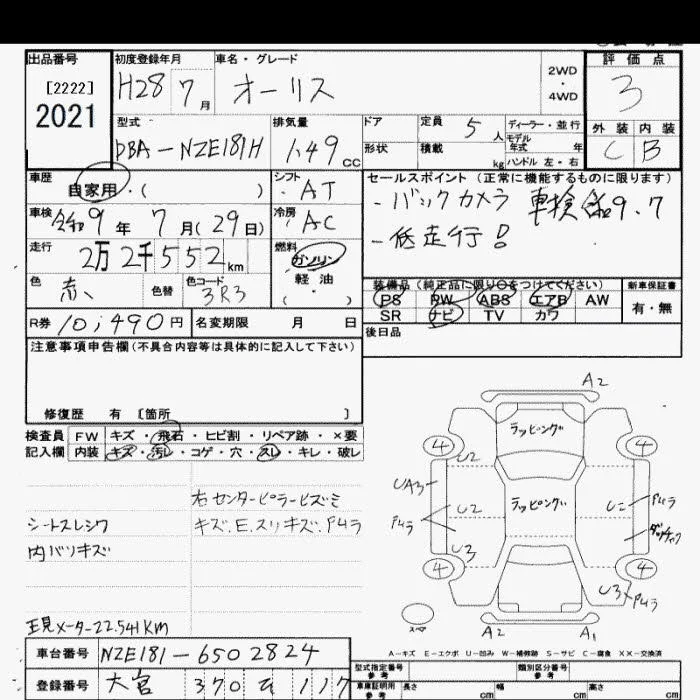 出品番号
[2222]
2021
初度登録年月
H28 7月
車名・グレード
オーリス
2WD
・
4WD
評価点
3
外装 内装
C B
型式
DBA-NZE181H
排気量
1.49 CC
ドア
形状
定員 5人
積載 kg
ディーラー・並行
モデル年式 年
ハンドル 左・右
車歴
自家用・( )
シフト
・AT
車検
令和9年7月(29日)
冷房
・AC
走行
2万2千552km
燃料
ガソリン
軽油
( ・ )
色
赤
色替
色コード
3R3
R券 10,490円
名変期限 月 日
セールスポイント(正常に機能するものに限ります)
・バックカメラ 車検令和9.7
・低走行!
装備品(純正品に限り○をつけてください)
PS PW ABS エアB AW
SR ナビ TV カワ
新車保証書
有・無
後日品
注意事項申告欄(不具合内容等は具体的に記入して下さい)
修復歴 有 [箇所 ]
検査員
記入欄
FW キズ・飛石・ヒビ割・リペア跡・×要
内装 キズ・汚レ・コゲ・穴・スレ・キレ・破レ
右センターピラーヒズミ
シートスレシワ
キズ.E.スリキズ.P4ラ
内バリキズ
現メーター22.541KM
A2
ラッピング
4 4
U2
UA3
ラッピング
U2
P4ラ
P4ラ
U3
4 4
U3 P4ラ
スペア
A2 A1
A-キズ E-エクボ U-凹み W-補修跡 S-サビ C-腐食 XX-交換済
車台番号 NZE181-6502824
登録番号 大宮 370 117
型式指定番号
参考
類別区分番号
参考
車庫証明用
参考
長さ cm
幅 cm
高さ cm